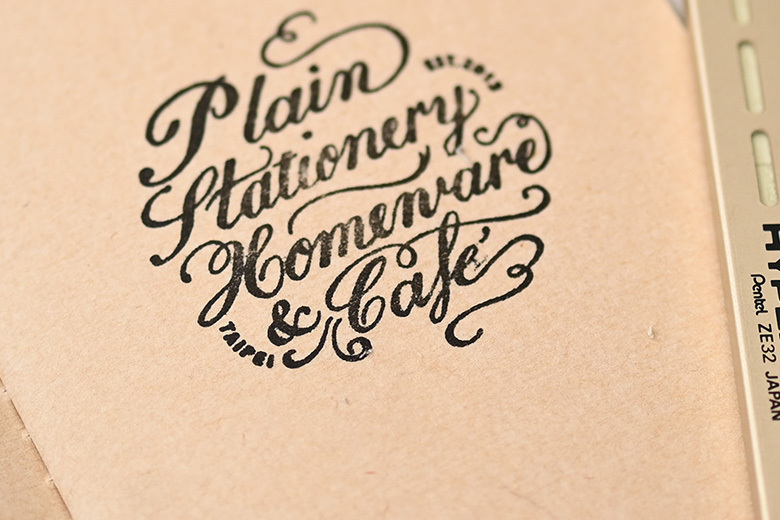 Plain
EST.2013
Stationery
Homeware
& Café
TAIPEI
Pentel ZE32 JAPAN